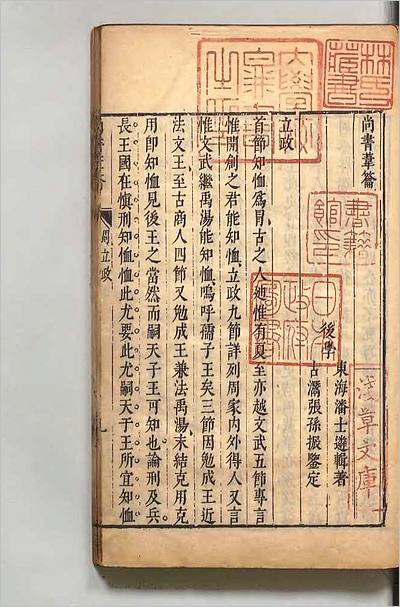 尚書葦籥
東海潘士遴輯著
後學
古潭張孫振鑒定
立政
首節知恤爲冒古之人迪惟有夏至亦越文武五節專言
惟開創之君能知恤立政九節詳列周家內外得人又言
惟文武繼禹湯能知恤嗚呼孺子王矣三節因勉成王近
法文王至古商人四節又勉成王兼法禹湯末結克用克
用卽知恤見後王之當然而嗣天子王可知也論刑及兵
長王國在慎刑知恤恤此尤要此尤嗣天子王所宜知恤
周立政
九
林氏藏書
書籍館印
日本政府圖書
淺草文庫